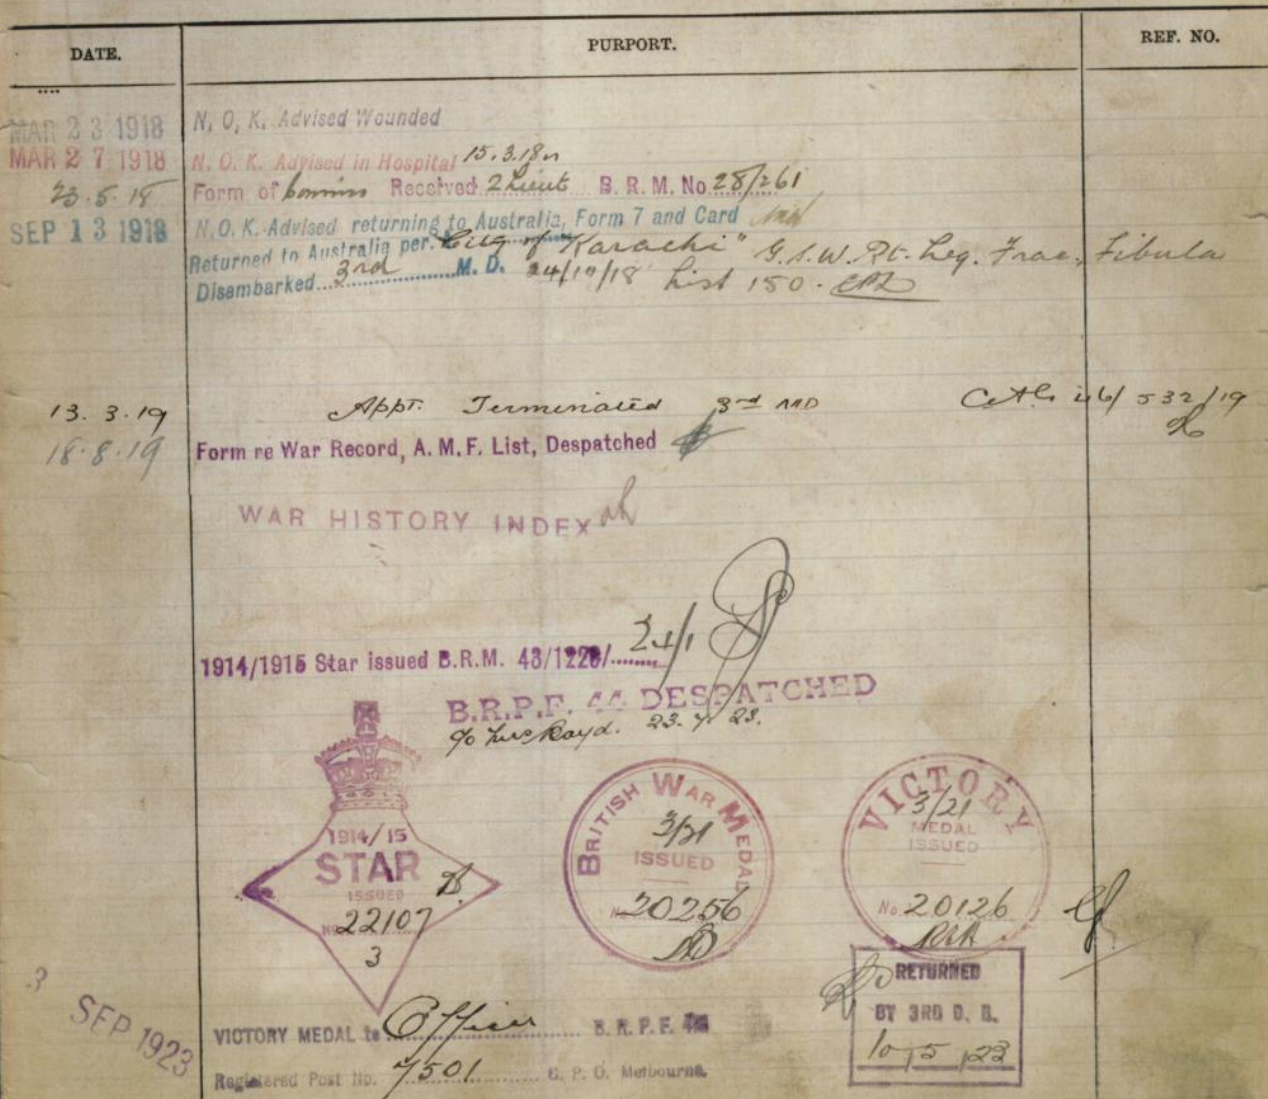 DATE. PURPORT. REF. NO.
MAR 23 1918 N, O, K, Advised Wounded
MAR 27 1918 N. O. K. Advised in Hospital 15.3.18
23.5.18 Form of Received 2 Lieut B. R. M. No 28/261
SEP 13 1918 N.O.K. Advised returning to Australia, Form 7 and Card
Returned to Australia per. "City of Karachi" G.S.W. Rt. Leg. Frac, Fibula
Disembarked 3rd M. D. 24/10/18 List 150.
13.3.19 Appt. Terminated 3rd MD 46/532/19
18.8.19 Form re War Record, A. M. F. List, Despatched
WAR HISTORY INDEX
1914/1915 Star issued B.R.M. 43/1228/ 24/1
B.R.P.F. 44 DESPATCHED
23.7.23.
1914/15
STAR
ISSUED
No 22107
3
BRITISH WAR MEDAL
3/21
ISSUED
No 20256
VICTORY
3/21
MEDAL
ISSUED
No. 20126
RETURNED
BY 3RD D. B.
10/5/23
3 SEP 1923
VICTORY MEDAL to Officer B. R. P. F.
Registered Post No. 7501 G. P. O. Melbourne.